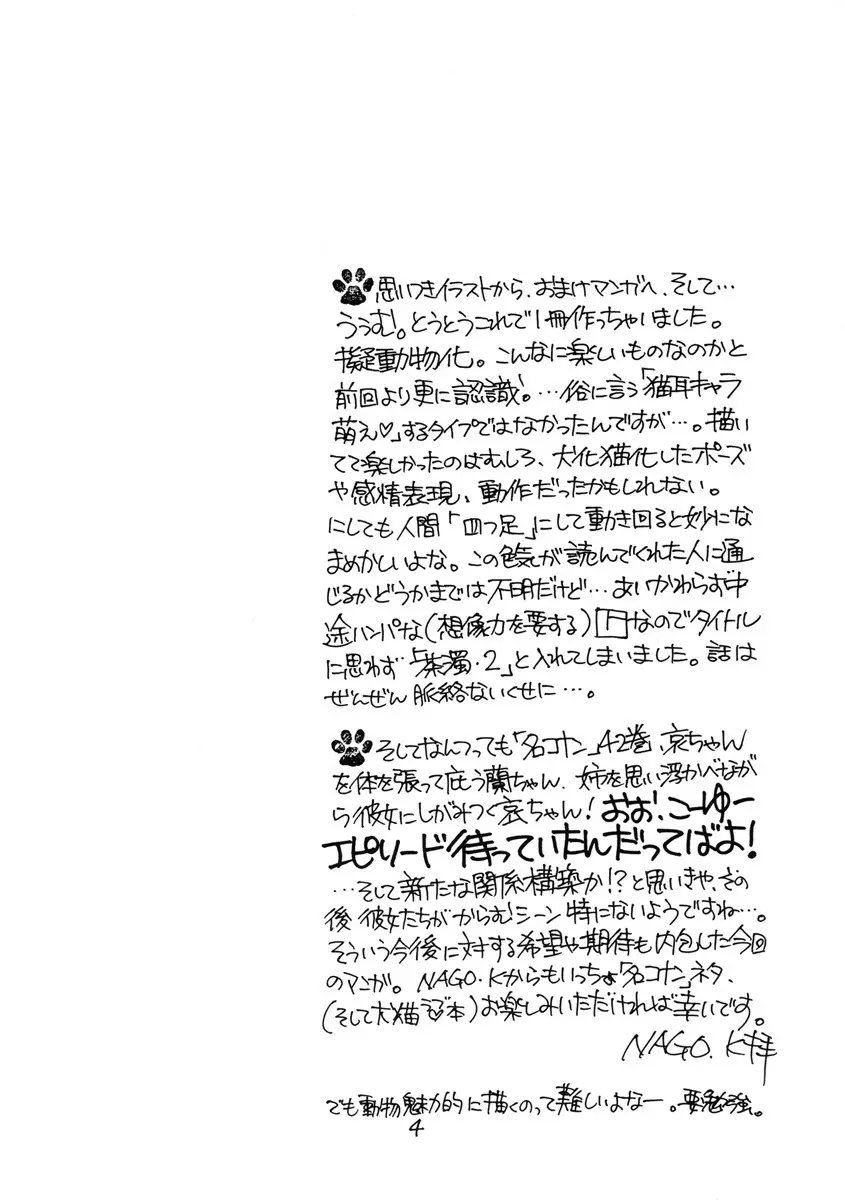 思いつきイラストから、おまけマンガへ、そして…
ううむ!。とうとうこれで1冊作っちゃいました。
擬動物化。こんなに楽しいものなのかと
前回より更に認識!。…俗に言う「猫耳キャラ
萌え♡」するタイプではなかったんですが…。描い
てて楽しかったのはむしろ、犬化猫化したポーズ
や感情表現、動作だったかもしれない。
にしても人間「四つ足」にして動き回ると妙にな
まめかしいよな。この色気が読んでくれた人に通
じるかどうかまでは不明だけど…あいかわらず中
途ハンパな(想像力を要する)Hなのでタイトル
に思わず「茶濁・2」と入れてしまいました。話は
ぜんぜん脈絡ないくせに…。
そしてなんつっても「名コナン」42巻、哀ちゃん
を体を張って庇う蘭ちゃん、姉を思い浮かべなが
ら彼女にしがみつく哀ちゃん!おお!、こーゆー
エピソード待っていたんだってばよ!
…そして新たな関係構築か!?と思いきや、その
後彼女たちがからむシーン特にないようですね…。
そういう今後に対する希望や期待も内包した今回
のマンガ。NAGO.Kからもいっちょ「名コナン」ネタ、
(そして犬猫 本)お楽しみいただければ幸いです。
NAGO.K拝
でも動物魅力的に描くのって難しいよなー。要勉強。
4